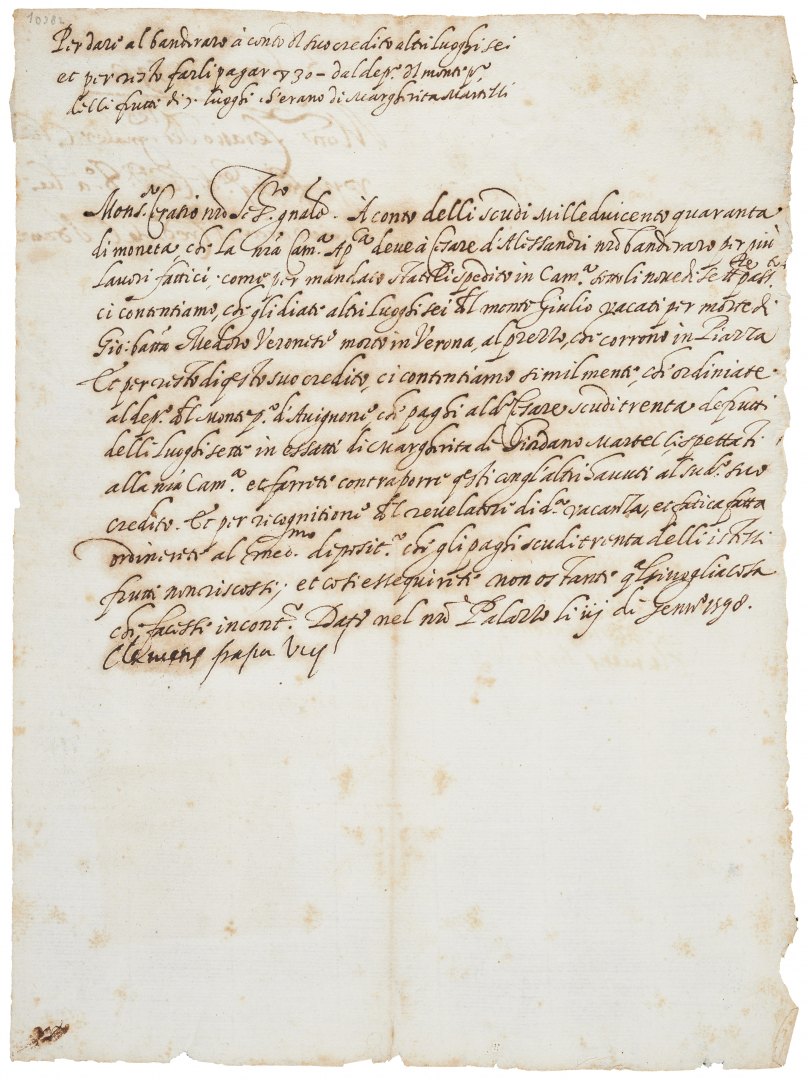 1028
Per dare al bandieraro à conto del suo credito altri luoghi sei
et per resto farli pagar 30 – dal dep.° del monte p.°
delli frutti di 7 luoghi ch'erano di Margherita Martelli
Mons.r Eratio nro The.° Gnale. A conto delli scudi Mille duicento quaranta
di moneta, che la nrã Cam.a Ap.ca deve à Cesare d'Alessandri nro bandieraro per più
lavori fattici, come per mandato spedito in Cam.a sotto li nove di passto
ci contentiamo, che gli diate altri luoghi sei del monte Giulio vacati per morte di
Gio: batta Medoro Veronese morto in Verona, al prezzo, che corrono in Piazza
Et per resto di questo suo credito, ci contentiamo similmente, che ordiniate
al dep.° del Monte p.° d'Avignone che paghi al d.° Cesare scudi trenta de frutti
delli luoghi sette inessatti di Margherita di Giordano Martelli, spettati
alla nrã Cam.a et farrete contraporre questi con gl'altri havuti al sud.° suo
credito. Et per recognitione del revelatore di d.a vacanza, et fatica fatta
ordinerete al med.mo deposit.° che gli paghi scudi trenta delli istessi
frutti non riscossi; et così essequirete non ostante qualsivoglia cosa
che facesse in cont.° Dato nel nro Palazzo li iij di Genn.° 1598.
Clemens papa viij